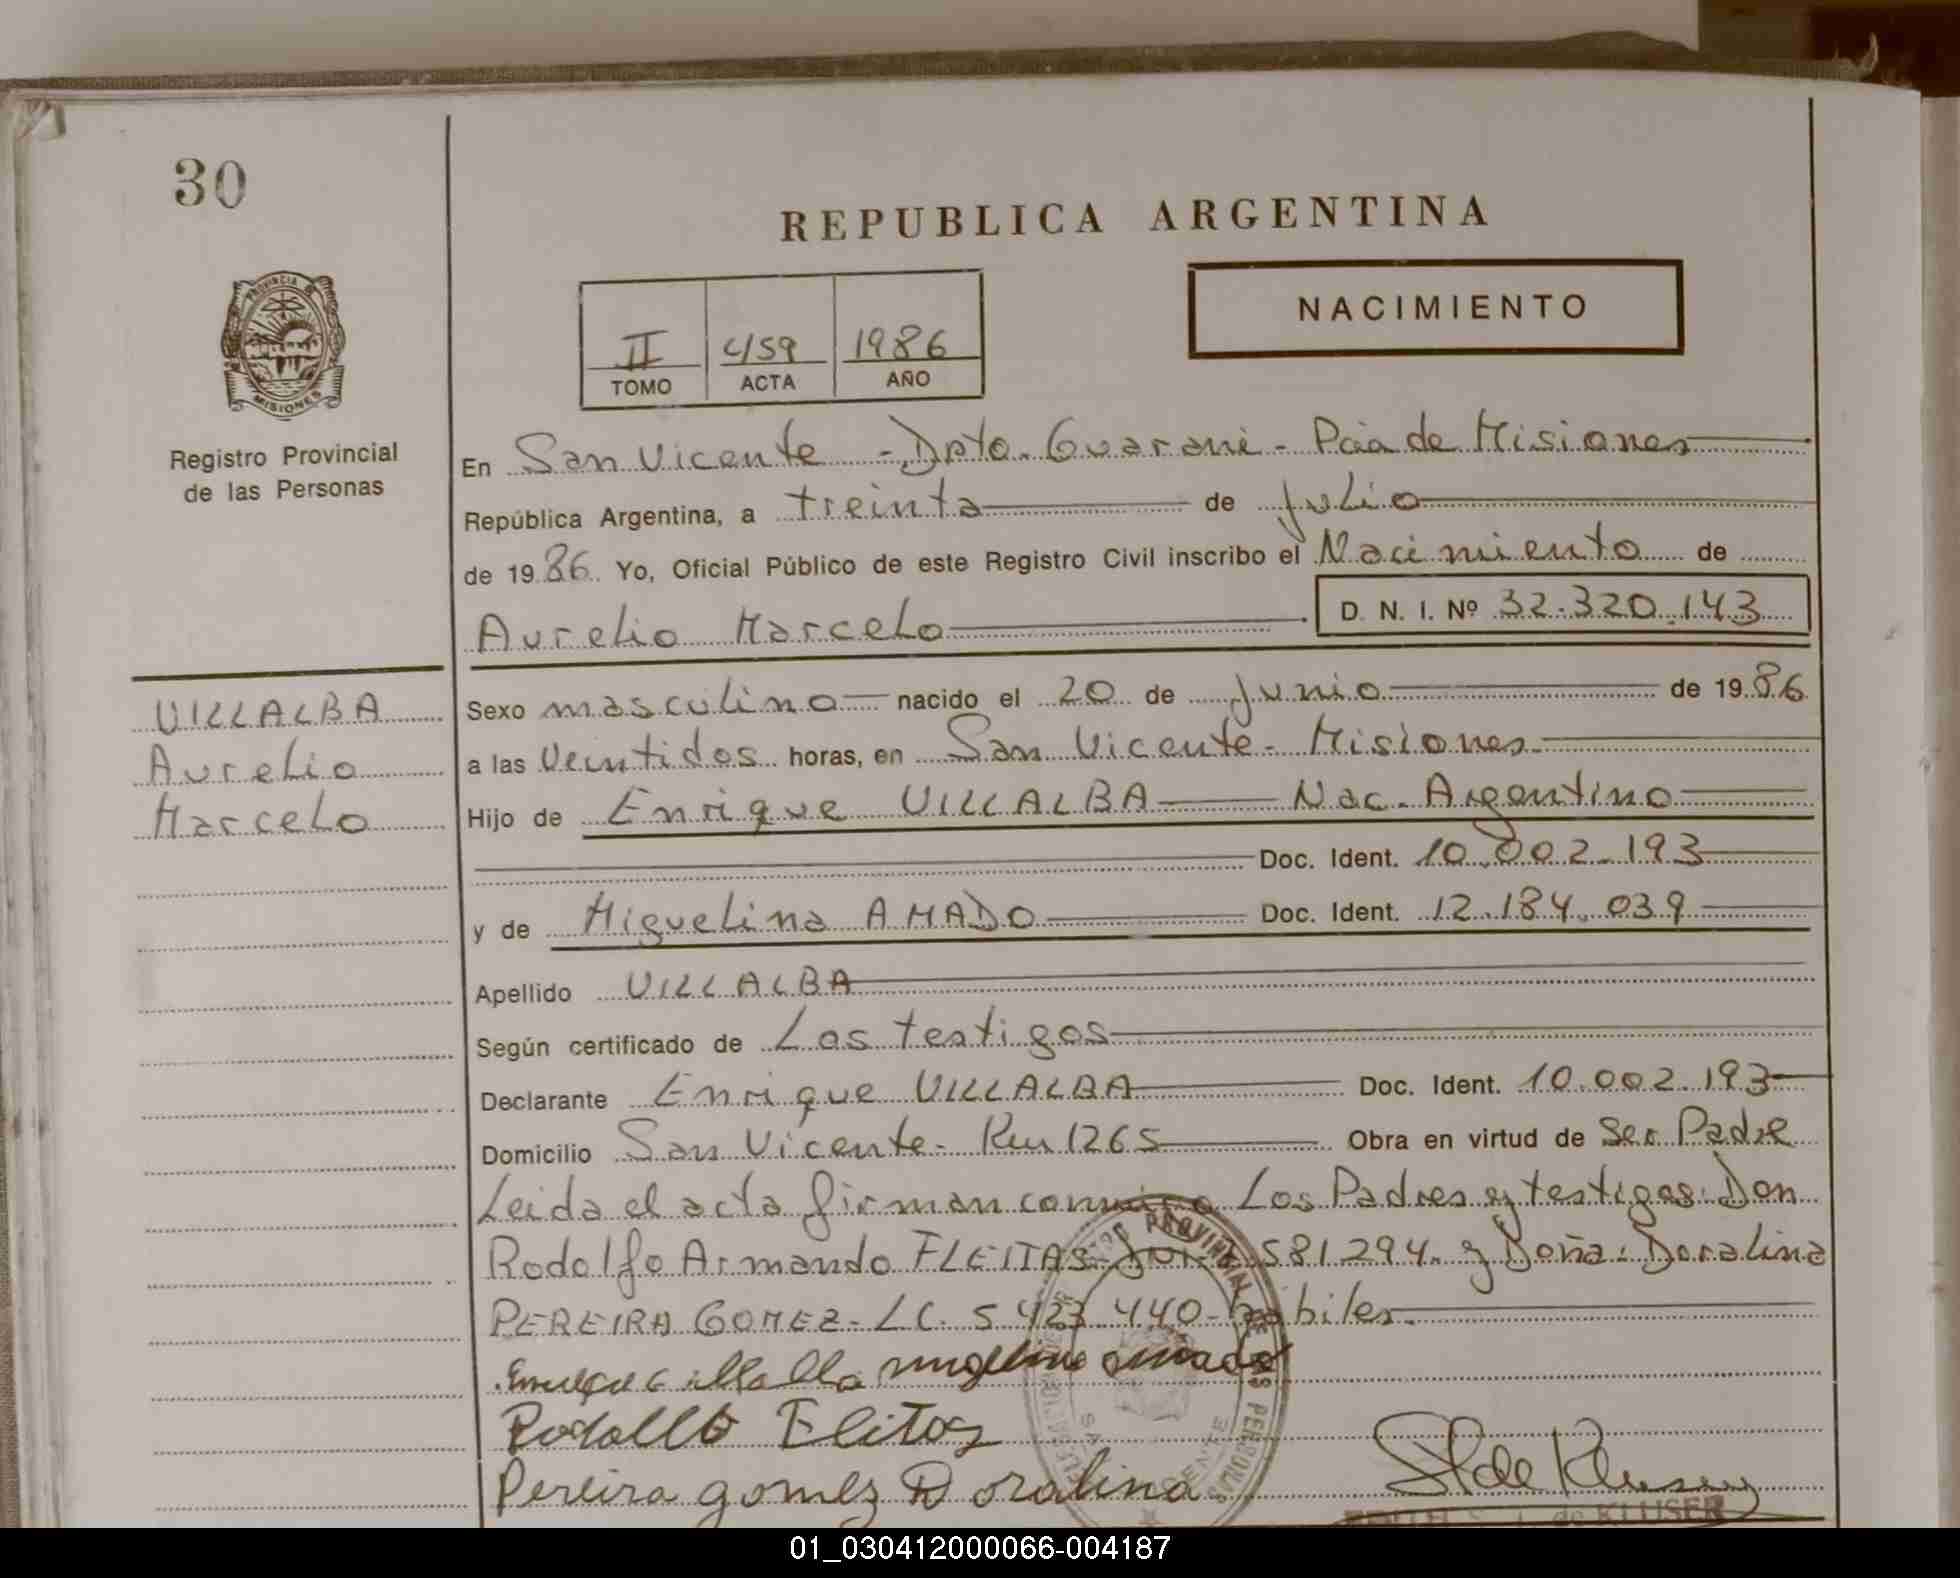 30
REPUBLICA ARGENTINA
PROVINCIA D
MISIONES
Registro Provincial
de las Personas
II 459 1986
TOMO ACTA AÑO
NACIMIENTO
En San Vicente - Dpto. Guarani - Pcia de Misiones
República Argentina, a treinta de Julio
de 1986. Yo, Oficial Público de este Registro Civil inscribo el Nacimiento de
Aurelio Marcelo D. N. I. Nº 32.320.143
VILLALBA
Aurelio
Marcelo
Sexo masculino nacido el 20 de Junio de 1986
a las Veintidos horas, en San Vicente - Misiones.
Hijo de Enrique VILLALBA Nac. Argentino
Doc. Ident. 10.002.193
y de Miguelina AMADO Doc. Ident. 12.184.039
Apellido VILLALBA
Según certificado de Los testigos
Declarante Enrique VILLALBA Doc. Ident. 10.002.193
Domicilio San Vicente - Km 1265 Obra en virtud de Ser Padre
Leida el acta firman conmigo Los Padres y testigos: Don
Rodolfo Armando FLEITAS 581.294. y Doña: Doralina
PEREIRA GOMEZ - LC. 5.423.440 - habiles.
Rodollo Flitos
Pereira gomes Doralina
de Kluser
de KLUSER
01_030412000066-004187